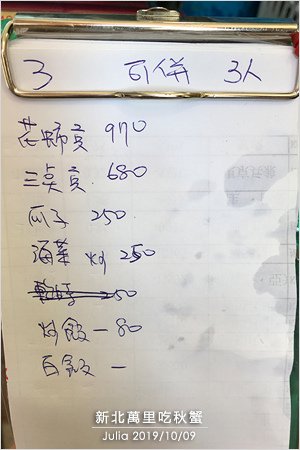 3 可併 3人
花蟳貢 970
三点貢 680
瓜子 250
海菜 炒 250
炒飯 一 80
白飯 一
新北萬里吃秋蟹
Julia 2019/10/09